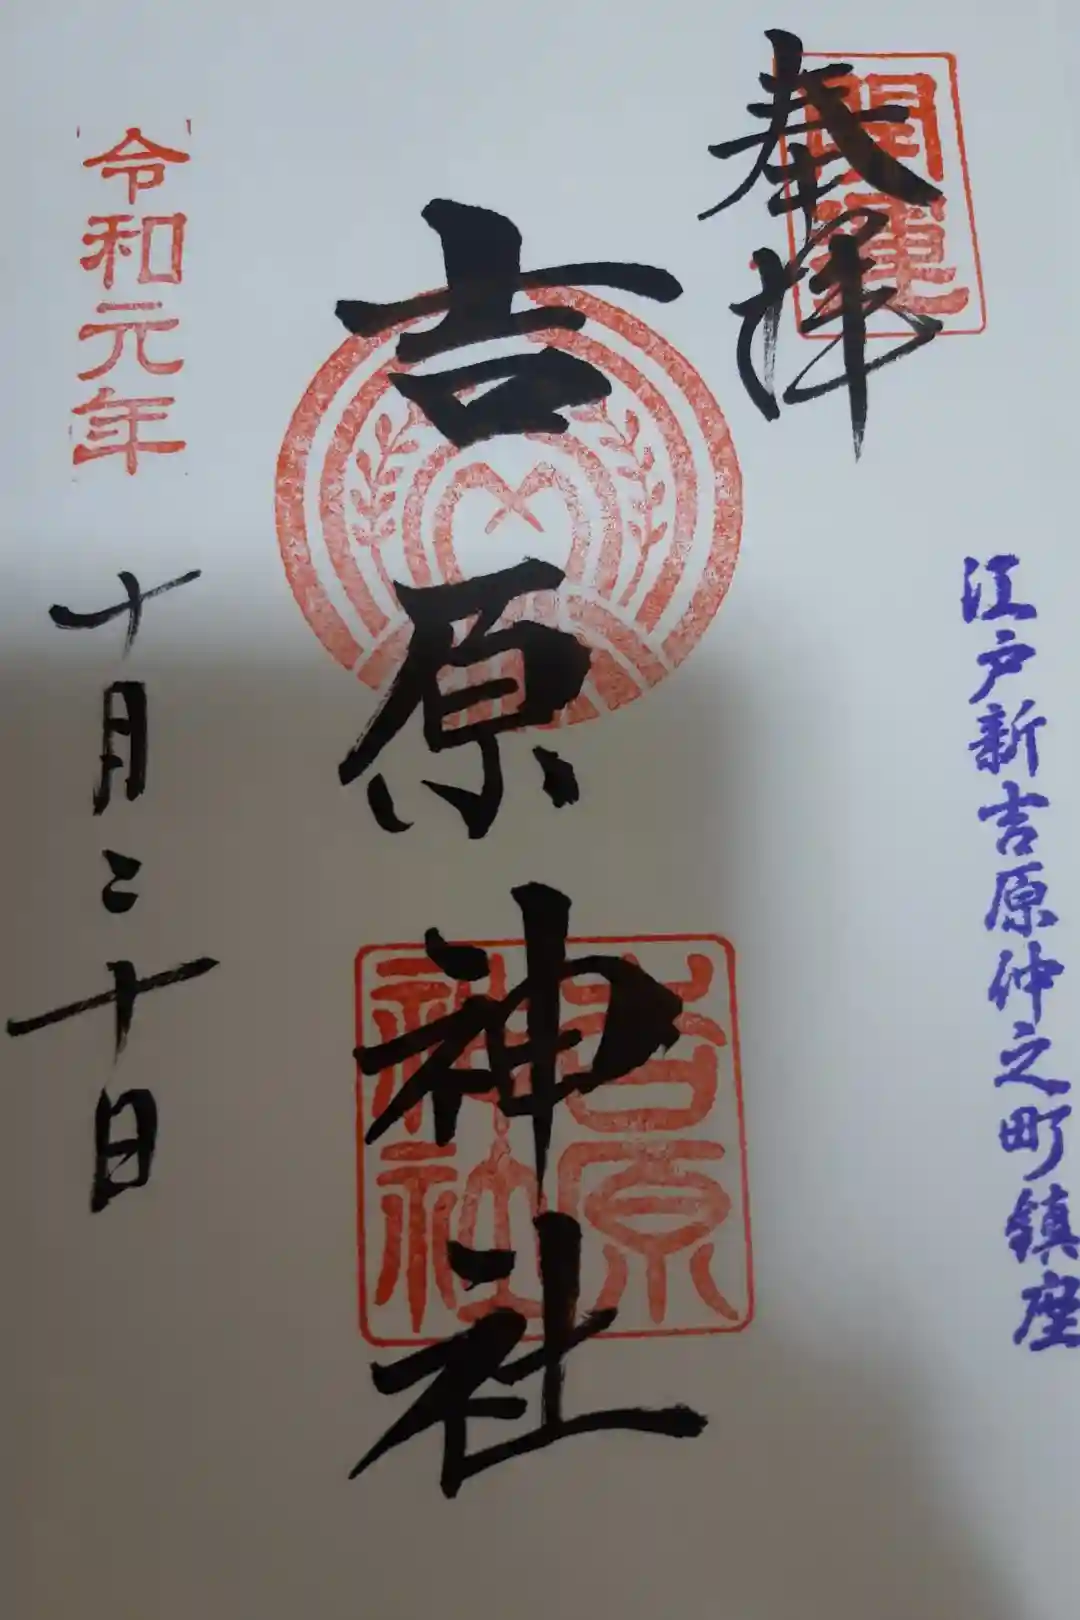 奉拝
開運
江戸新吉原仲之町鎮座
吉原神社
吉原
神社
令和元年
十月二十日